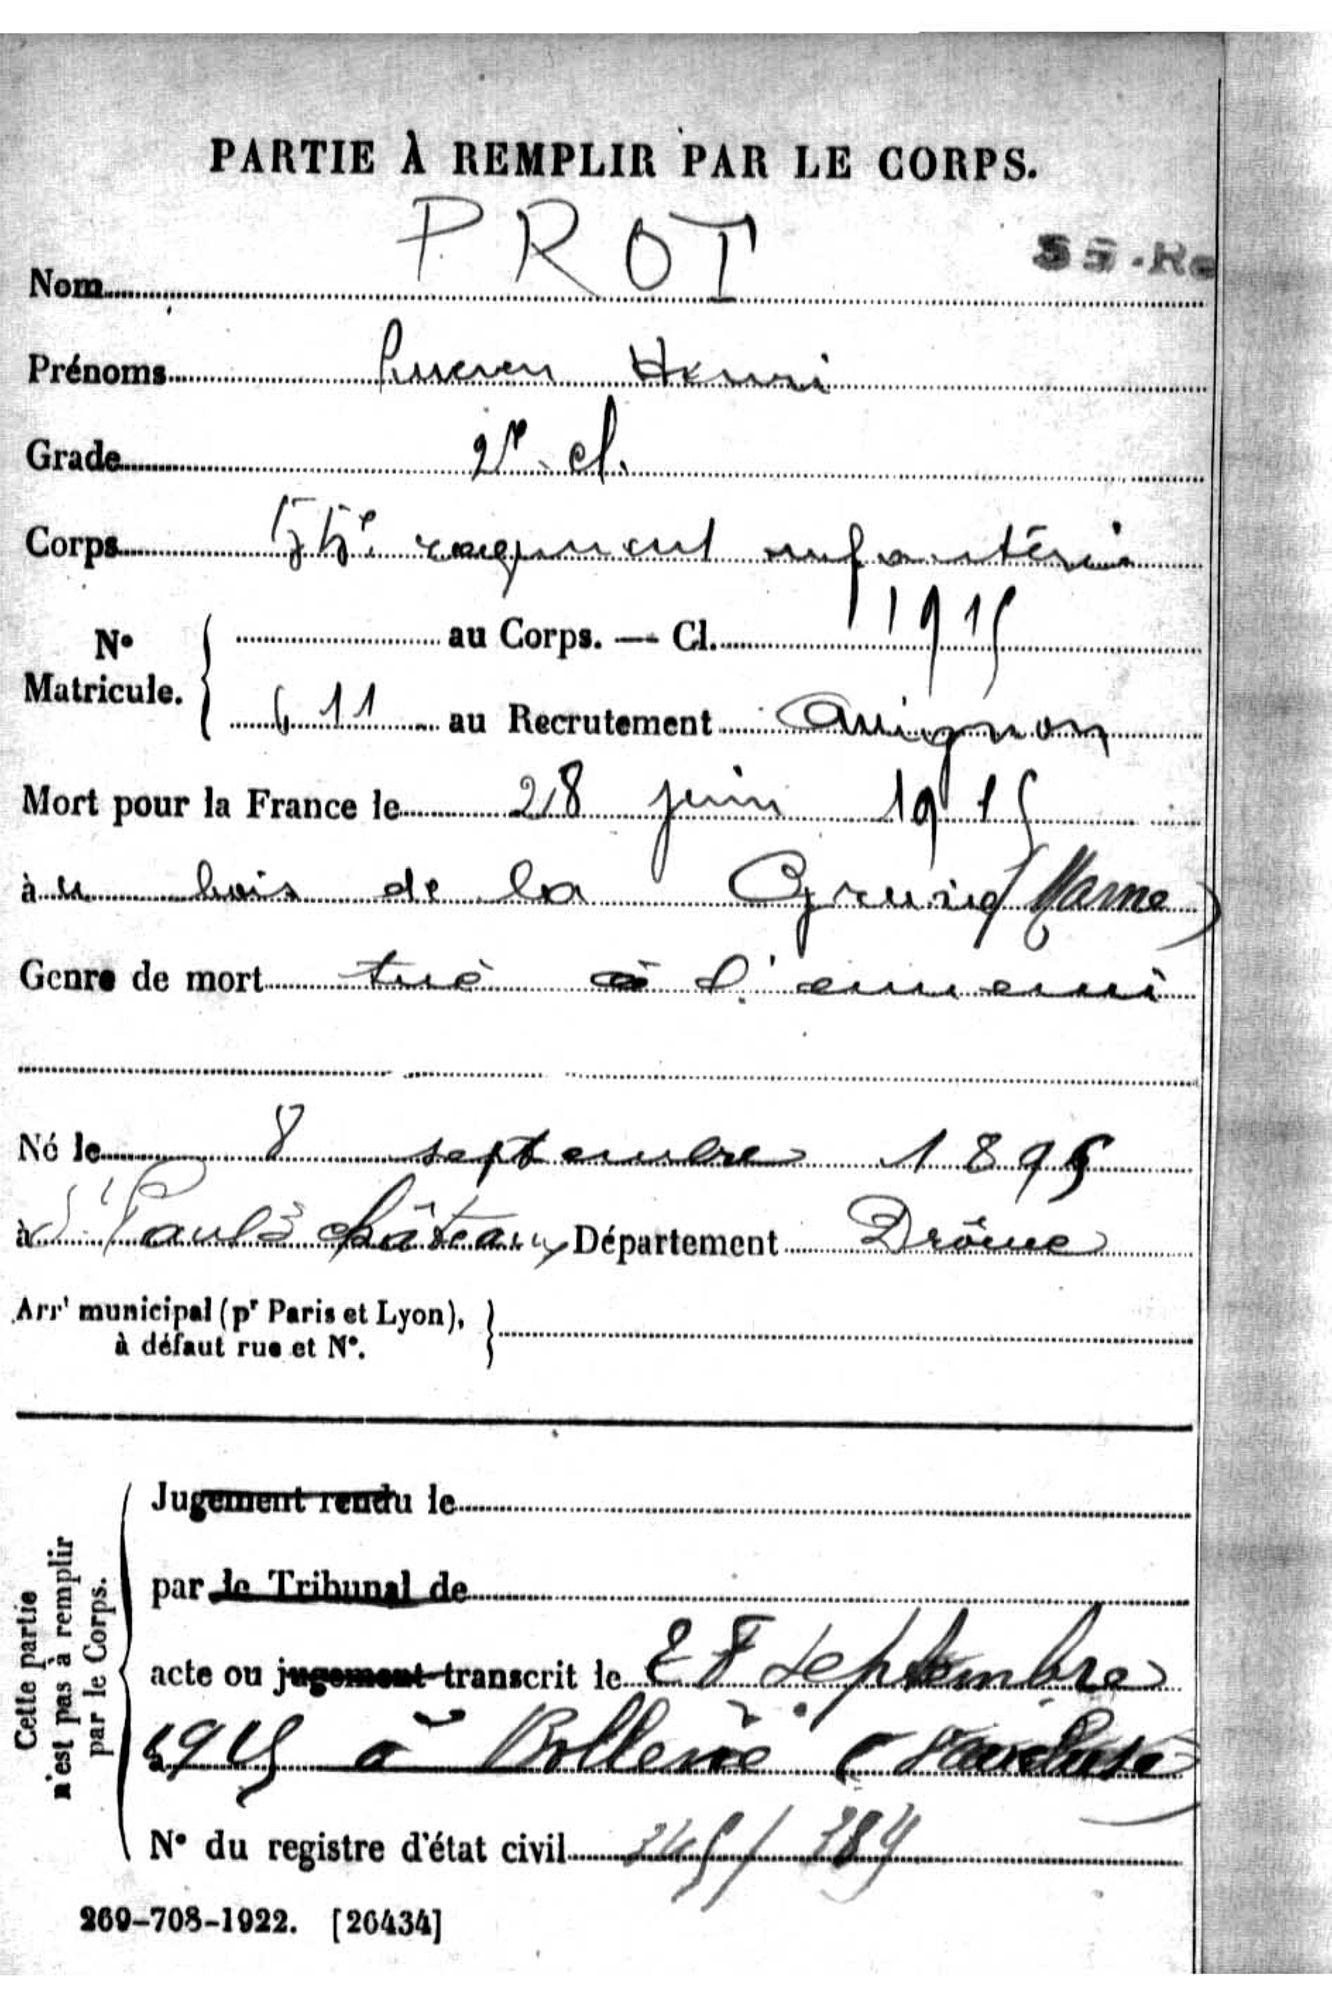 PARTIE À REMPLIR PAR LE CORPS.
PROT
Nom
Prénoms Lucien Henri
Grade 2e cl.
Corps 55e regiment infanterie
N° Matricule.
au Corps. — Cl. 1915
611 au Recrutement Avignon
Mort pour la France le 28 juin 1915
à u bois de la Grurie (Marne)
Genre de mort tué à l'ennemi
Né le 8 septembre 1895
à St Paul 3 châteaux Département Drôme
Arrt municipal (pr Paris et Lyon),
à défaut rue et N°.
Cette partie
n'est pas à remplir
par le Corps.
Jugement rendu le
par le Tribunal de
acte ou jugement transcrit le 27 septembre
1915 à Bollène (Vaucluse)
N° du registre d'état civil
269-708-1922. [26434]